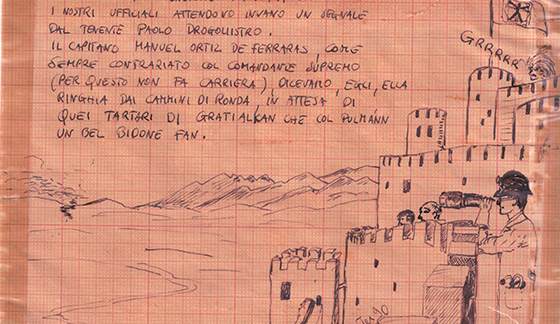 I NOSTRI UFFICIALI ATTENDONO INVANO UN SEGNALE
DAL TENENTE PAOLO DROGOLISTRO.
IL CAPITANO MANUEL ORTIZ DE FERRARAS, COME
SEMPRE CONTRARIATO COL COMANDANTE SUPREMO
(PER QUESTO NON FA CARRIERA), DICEVAMO, EGLI, ELLA
RINGHIA DAI CAMMINI DI RONDA, IN ATTESA DI
QUEI TARTARI DI GRATIALKAN CHE COL PULMANN
UN BEL BIDONE FAN.
GRRRRR